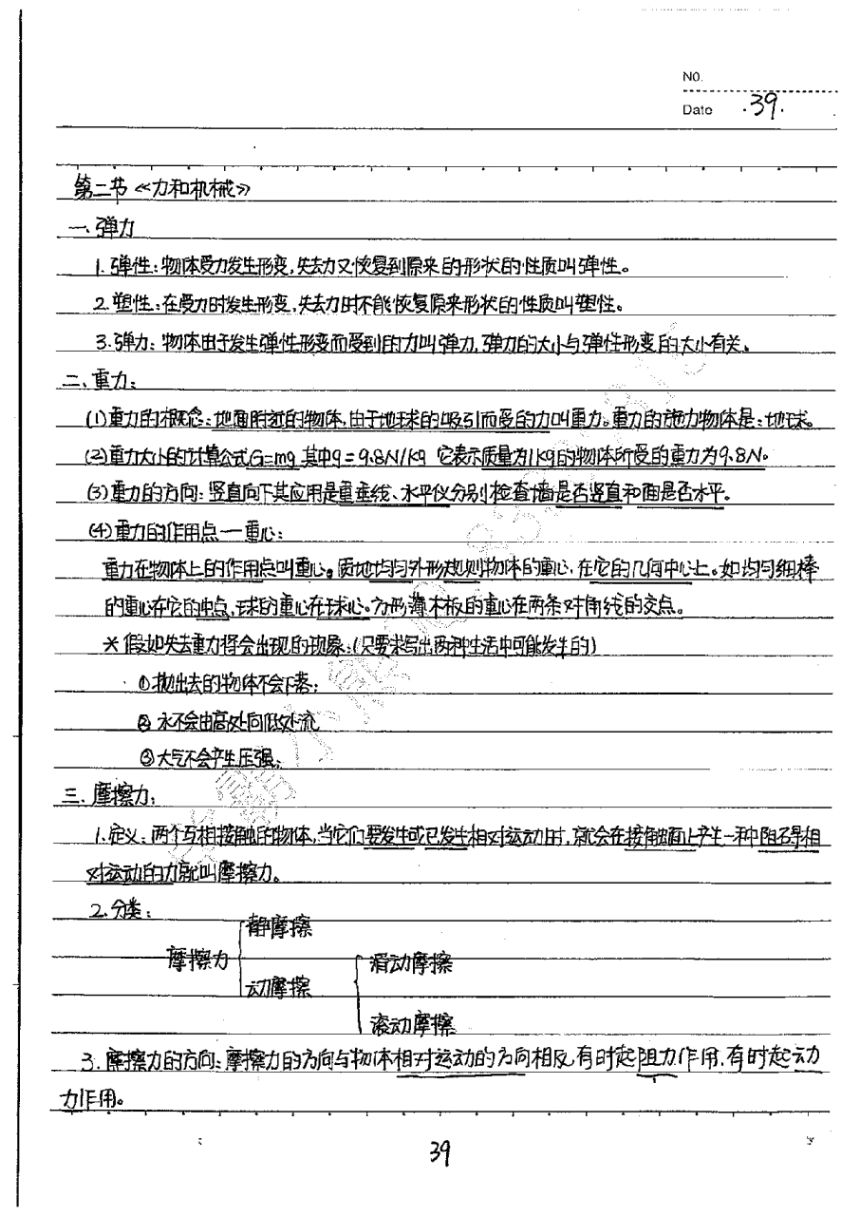 NO.
Date .39.
第二节《力和机械》
一、弹力
1.弹性:物体受力发生形变,失去力又恢复到原来的形状的性质叫弹性。
2.塑性:在受力时发生形变,失去力时不能恢复原来形状的性质叫塑性。
3.弹力:物体由于发生弹性形变而受到的力叫弹力,弹力的大小与弹性形变的大小有关。
二、重力:
(1)重力的概念:地面附近的物体,由于地球的吸引而受的力叫重力。重力的施力物体是:地球。
(2)重力大小的计算公式G=mg 其中g=9.8N/kg 它表示质量为1kg的物体所受的重力为9.8N。
(3)重力的方向:竖直向下其应用是重垂线、水平仪分别检查墙是否竖直和面是否水平。
(4)重力的作用点—重心:
重力在物体上的作用点叫重心。质地均匀外形规则物体的重心,在它的几何中心上。如均匀细棒
的重心在它的中点,球的重心在球心。方形薄木板的重心在两条对角线的交点。
*假如失去重力将会出现的现象:(只要求写出两种生活中可能发生的)
①抛出去的物体不会下落;
②水不会由高处向低处流
③大气不会产生压强;
三、摩擦力:
1.定义:两个互相接触的物体,当它们要发生或已发生相对运动时,就会在接触面上产生一种阻碍相
对运动的力就叫摩擦力。
2.分类:
静摩擦
摩擦力
滑动摩擦
动摩擦
滚动摩擦
3.摩擦力的方向:摩擦力的方向与物体相对运动的方向相反,有时起阻力作用,有时起动
力作用。
39